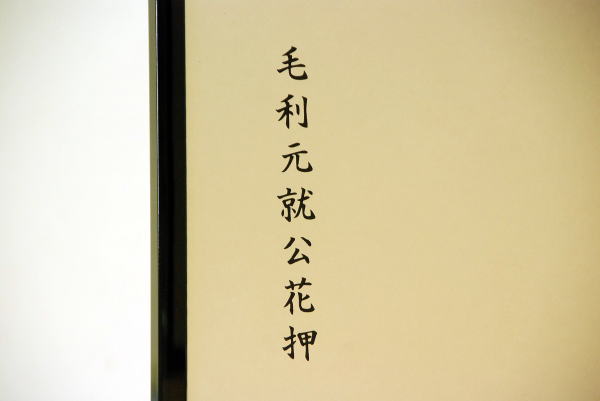 毛利元就公花押